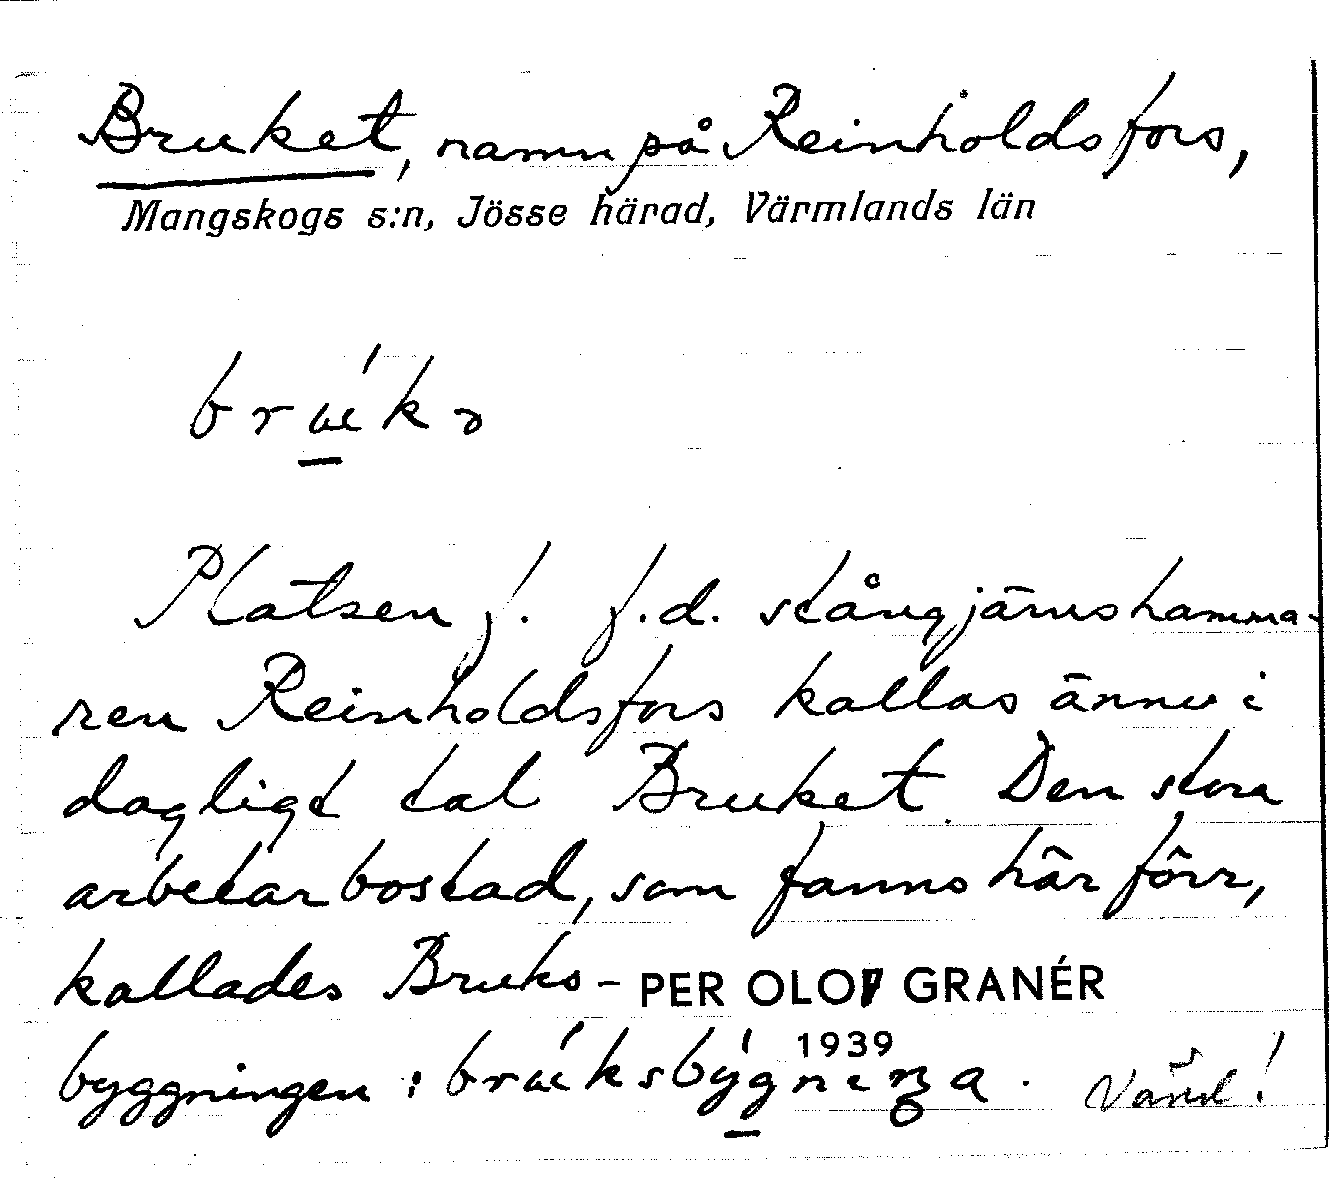 Bruket, namn på Reinholdsfors,
Mangskogs s:n, Jösse härad, Värmlands län
brúkə
Platsen f. f.d. stångjärnshamma-
ren Reinholdsfors kallas ännu i
dagligt tal Bruket. Den stora
arbetarbostad, som fanns här förr,
kallades Bruks-
PER OLOF GRANÉR
1939
byggningen :
Vänd!